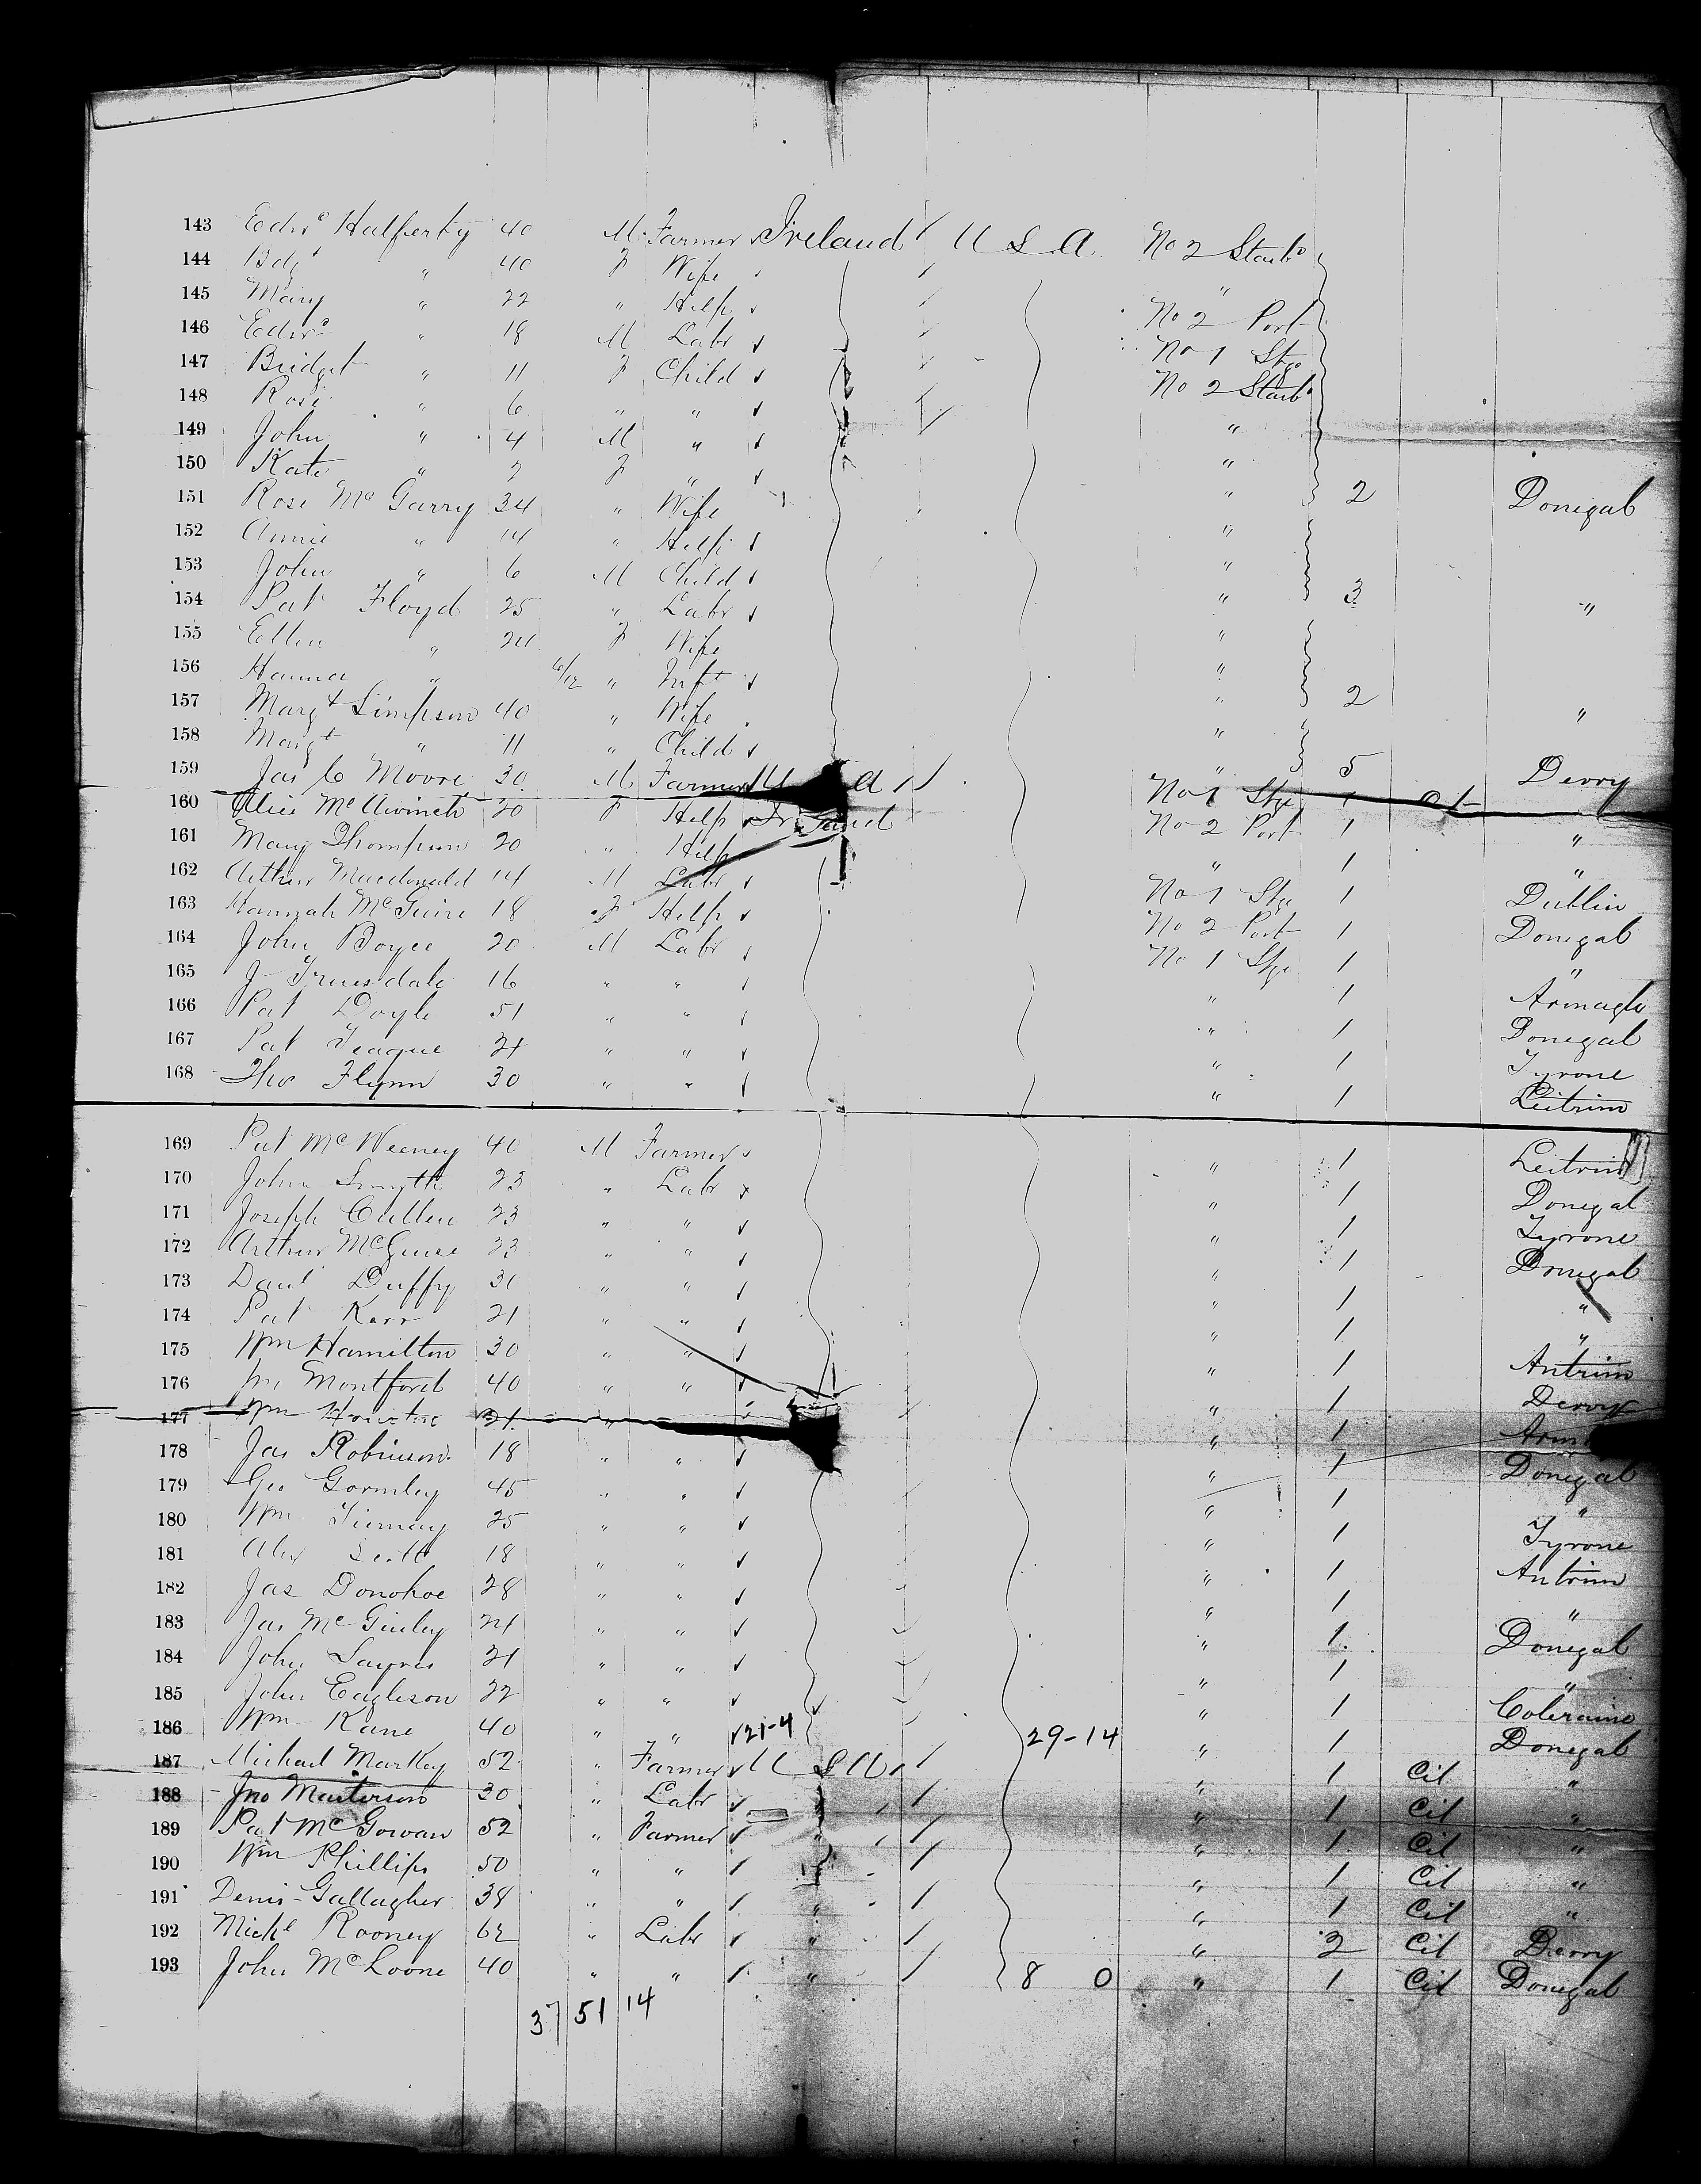 143 Edwd Halferty 40 M Farmer Ireland U S A No 2 Starbd
144 Bdgt " 40 F Wife "
145 Mary " 22 " Help No 2 Port
146 Edwd " 18 M Labr No 1 Stge
147 Bridget " 11 F Child No 2 Starbd
148 Rose " 6 " " "
149 John " 4 M " "
150 Kate " 2 F " " 2 Donegal
151 Rose McGarry 34 " Wife "
152 Annie " 14 " Help "
153 John " 6 M Child " 3 "
154 Pat Floyd 25 " Labr "
155 Ellen " 24 F Wife "
156 Hanna " 6/12 " Inft " 2 "
157 Margt Simpson 40 " Wife "
158 Margt " 11 " Child " 5 Derry
159 Jas C Moore 30 M Farmer U A No 1 Stge 1 "
160 Alice McAwinch 20 F Help Ireland No 2 Port 1 "
161 Mary Thompson 20 " Help " 1 Dublin
162 Arthur Macdonald 14 M Labr No 1 Stge 1 Donegal
163 Hannah McGuire 18 F Help No 2 Port 1 "
164 John Boyce 20 M Labr No 1 Stge 1
165 J Truesdale 16 " " " 1 Armagh
166 Pat Doyle 51 " " " 1 Donegal
167 Pat Teague 21 " " " 1 Tyrone
168 Thos Flynn 30 " " " 1 Leitrim
169 Pat McWeeney 40 M Farmer " 1 Leitrim
170 John Smyth 23 " Labr " 1 Donegal
171 Joseph Cullen 23 " " " 1 Tyrone
172 Arthur McGuire 23 " " " 1 Donegal
173 Danl Duffy 30 " " " 1 "
174 Pat Kerr 21 " " " 1 "
175 Wm Hamilton 30 " " " 1 Antrim
176 Jno Montford 40 " " " 1 Derry
177 Wm 21 " " " 1
178 Jas Robinson 18 " " " 1 Donegal
179 Geo Gormley 45 " " " 1 "
180 Wm Tierney 25 " " " 1 Tyrone
181 Alex Scott 18 " " " 1 Antrim
182 Jas Donohoe 28 " " " 1 "
183 Jas McGinley 21 " " " 1 Donegal
184 John 21 " " " 1 "
185 John Eagleson 22 " " " 1 Coleraine
186 Wm Kane 40 " " 21-4 29-14 " 1 Donegal
187 Michael Markey 52 " Farmer U S A " 1 Cit "
188 Jno Masterson 30 " Labr " " 1 Cit "
189 Pat McGowan 52 " Farmer " " 1 Cit "
190 Wm Phillips 50 " " " " 1 Cit "
191 Denis Gallagher 38 " " " " 1 Cit "
192 Michl Rooney 62 " Labr " " 2 Cit Derry
193 John McLoone 40 " " " 8 0 " 1 Cit Donegal
37 51 14